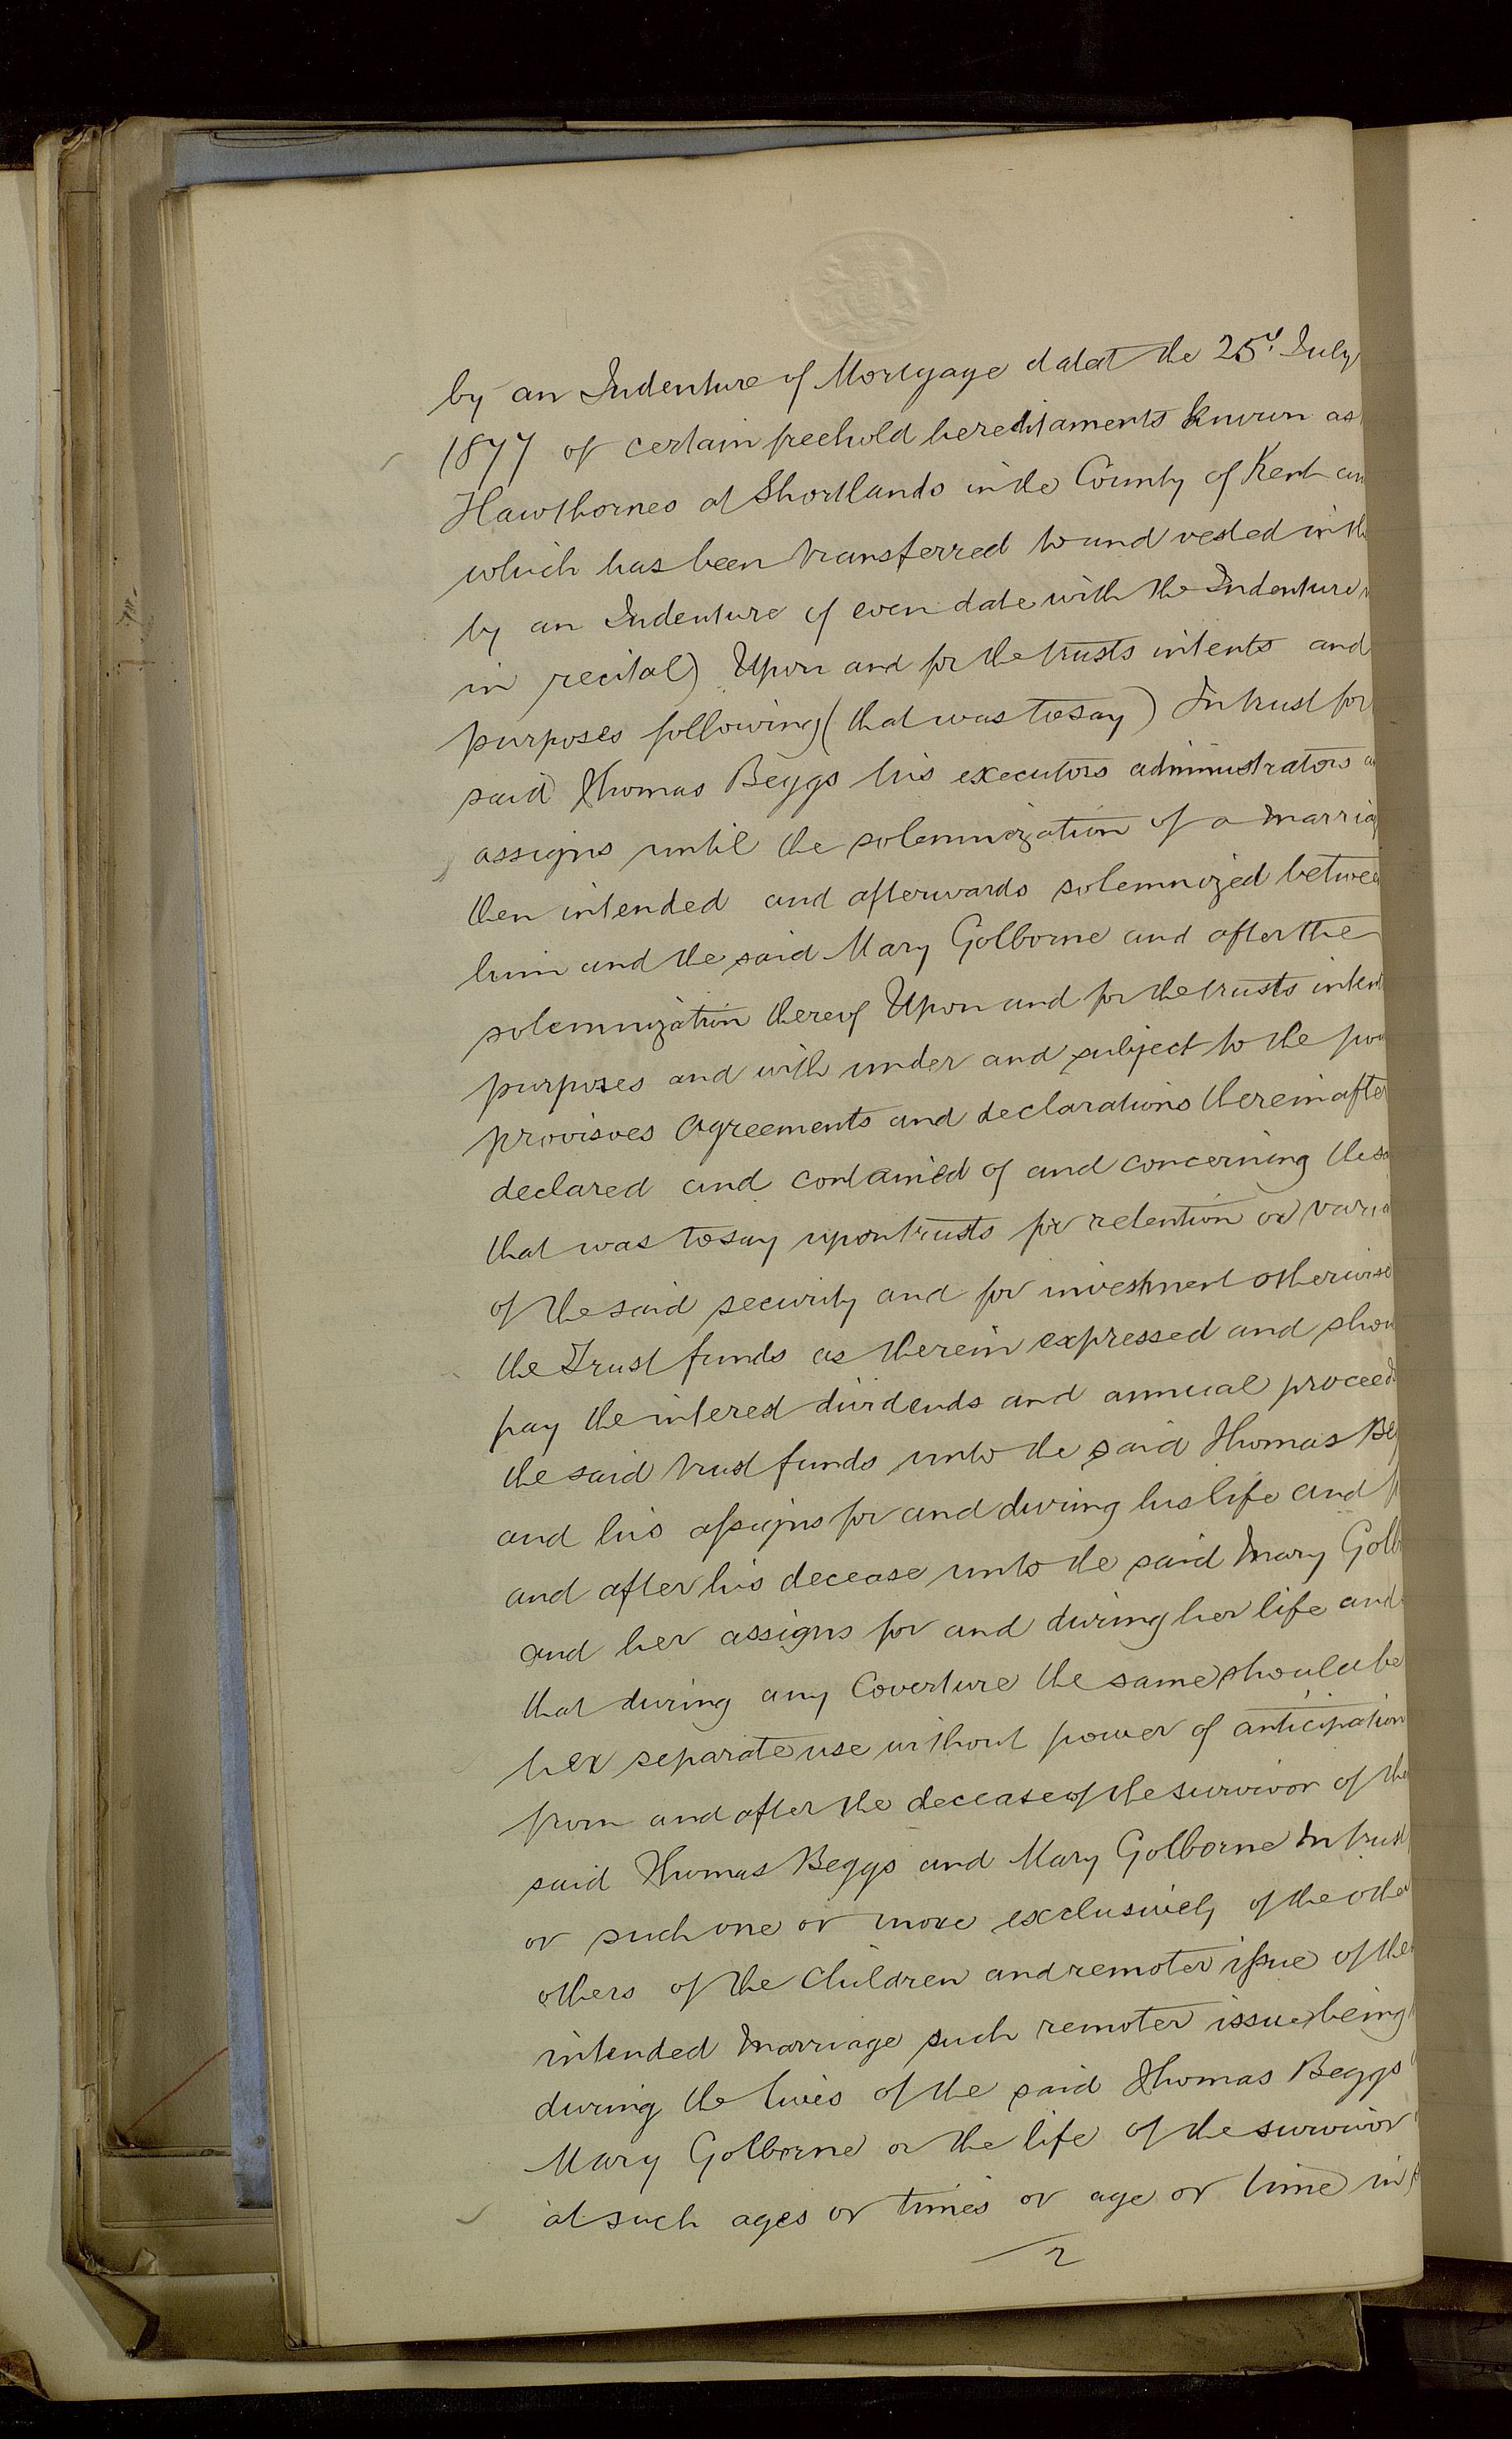 by an Indenture of Mortgage dated the 25th July
1877 of certain freehold hereditaments known as
Hawthornes at Shortlands in the County of Kent an
which has been transferred to and vested in th
by an Indenture of even date with the Indenture
in recital) Upon and for the trusts intents and
purposes following (that was to say) In trust for
said Thomas Beggs his executors administrators a
assigns until the solemnization of a marriag
then intended and afterwards solemnized betwee
him and the said Mary Golborne and after the
solemnization thereof Upon and for the trusts intent
purposes and with under and subject to the pow
provisoes agreements and declarations thereinafter
declared and contained of and concerning the sa
that was to say upon trusts for retention or varia
of the said security and for investment otherwise
the Trust funds as therein expressed and shou
pay the interest dividends and annual proceed
the said trust funds unto the said Thomas Beg
and his assigns for and during his life and f
and after his decease unto the said Mary Golb
and her assigns for and during her life and
that during any Coverture the same should be
her separate use without power of anticipation
from and after the decease of the survivor of the
said Thomas Beggs and Mary Golborne In trust
or such one or more exclusively of the other
others of the Children and remoter issue of the
intended Marriage such remoter issue being
during the lives of the said Thomas Beggs
Mary Golborne or the life of the survivor
at such ages or times or age or time in
2